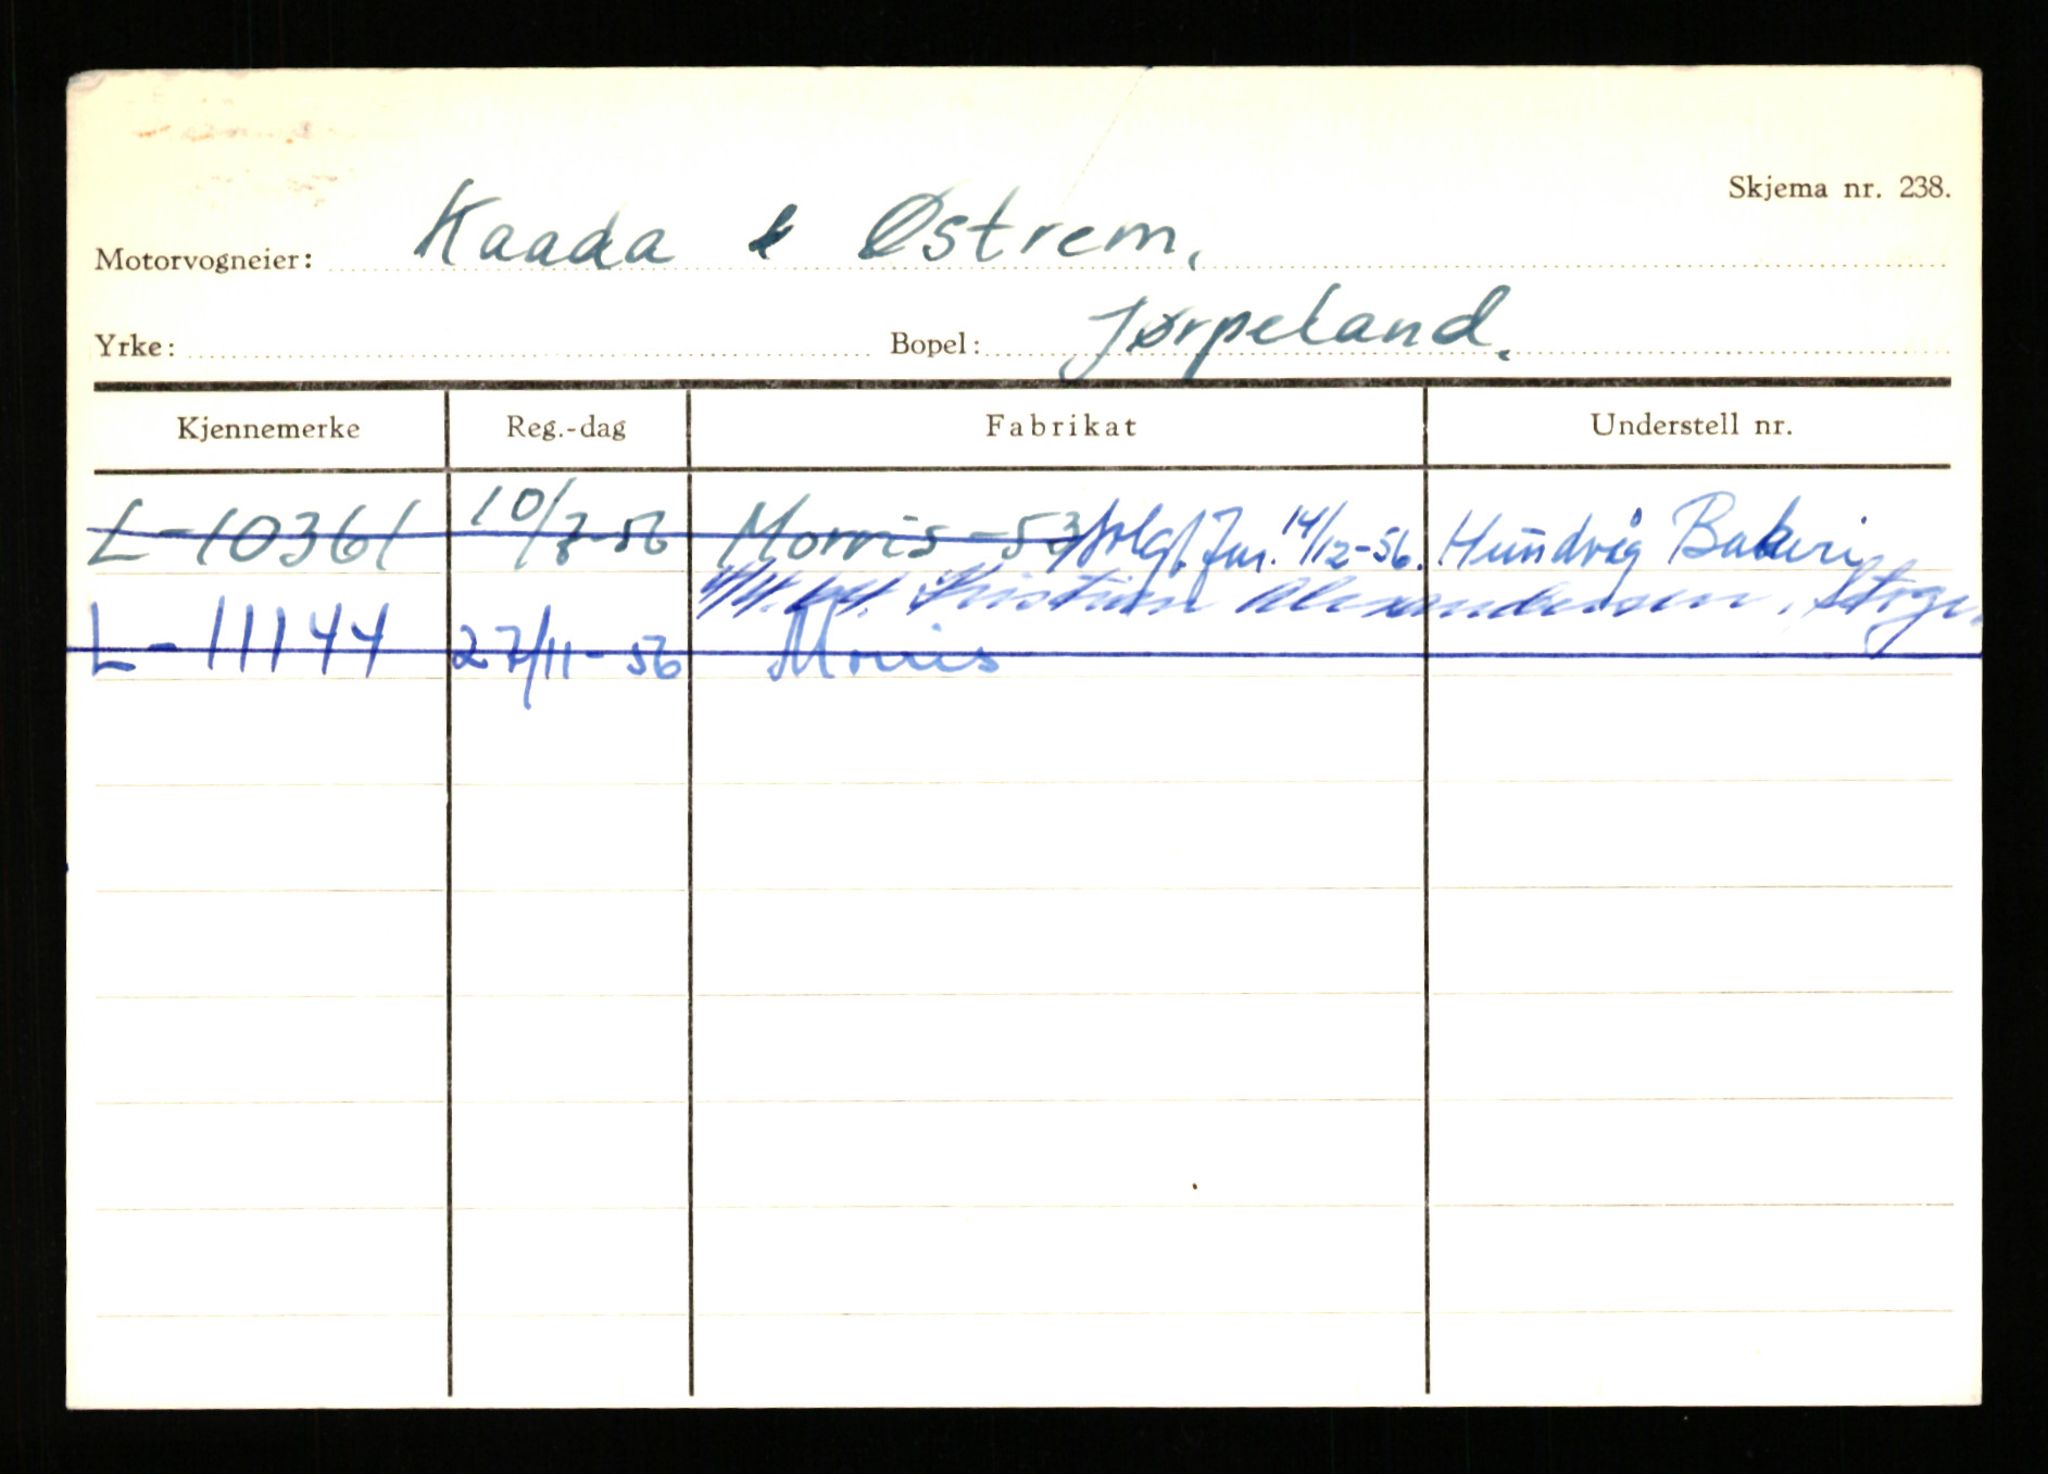 Skjema nr. 238.
Motorvogneier: Kaada & Østrem,
Yrke: Bopel: Jørpeland.
Kjennemerke Reg.-dag Fabrikat Understell nr.
L-10361 10/7-56 Morris-53 solgt 14/12-56. Hundvåg Bakeri
Kristian Alexandersen,
L-11144 27/11-56 Morris